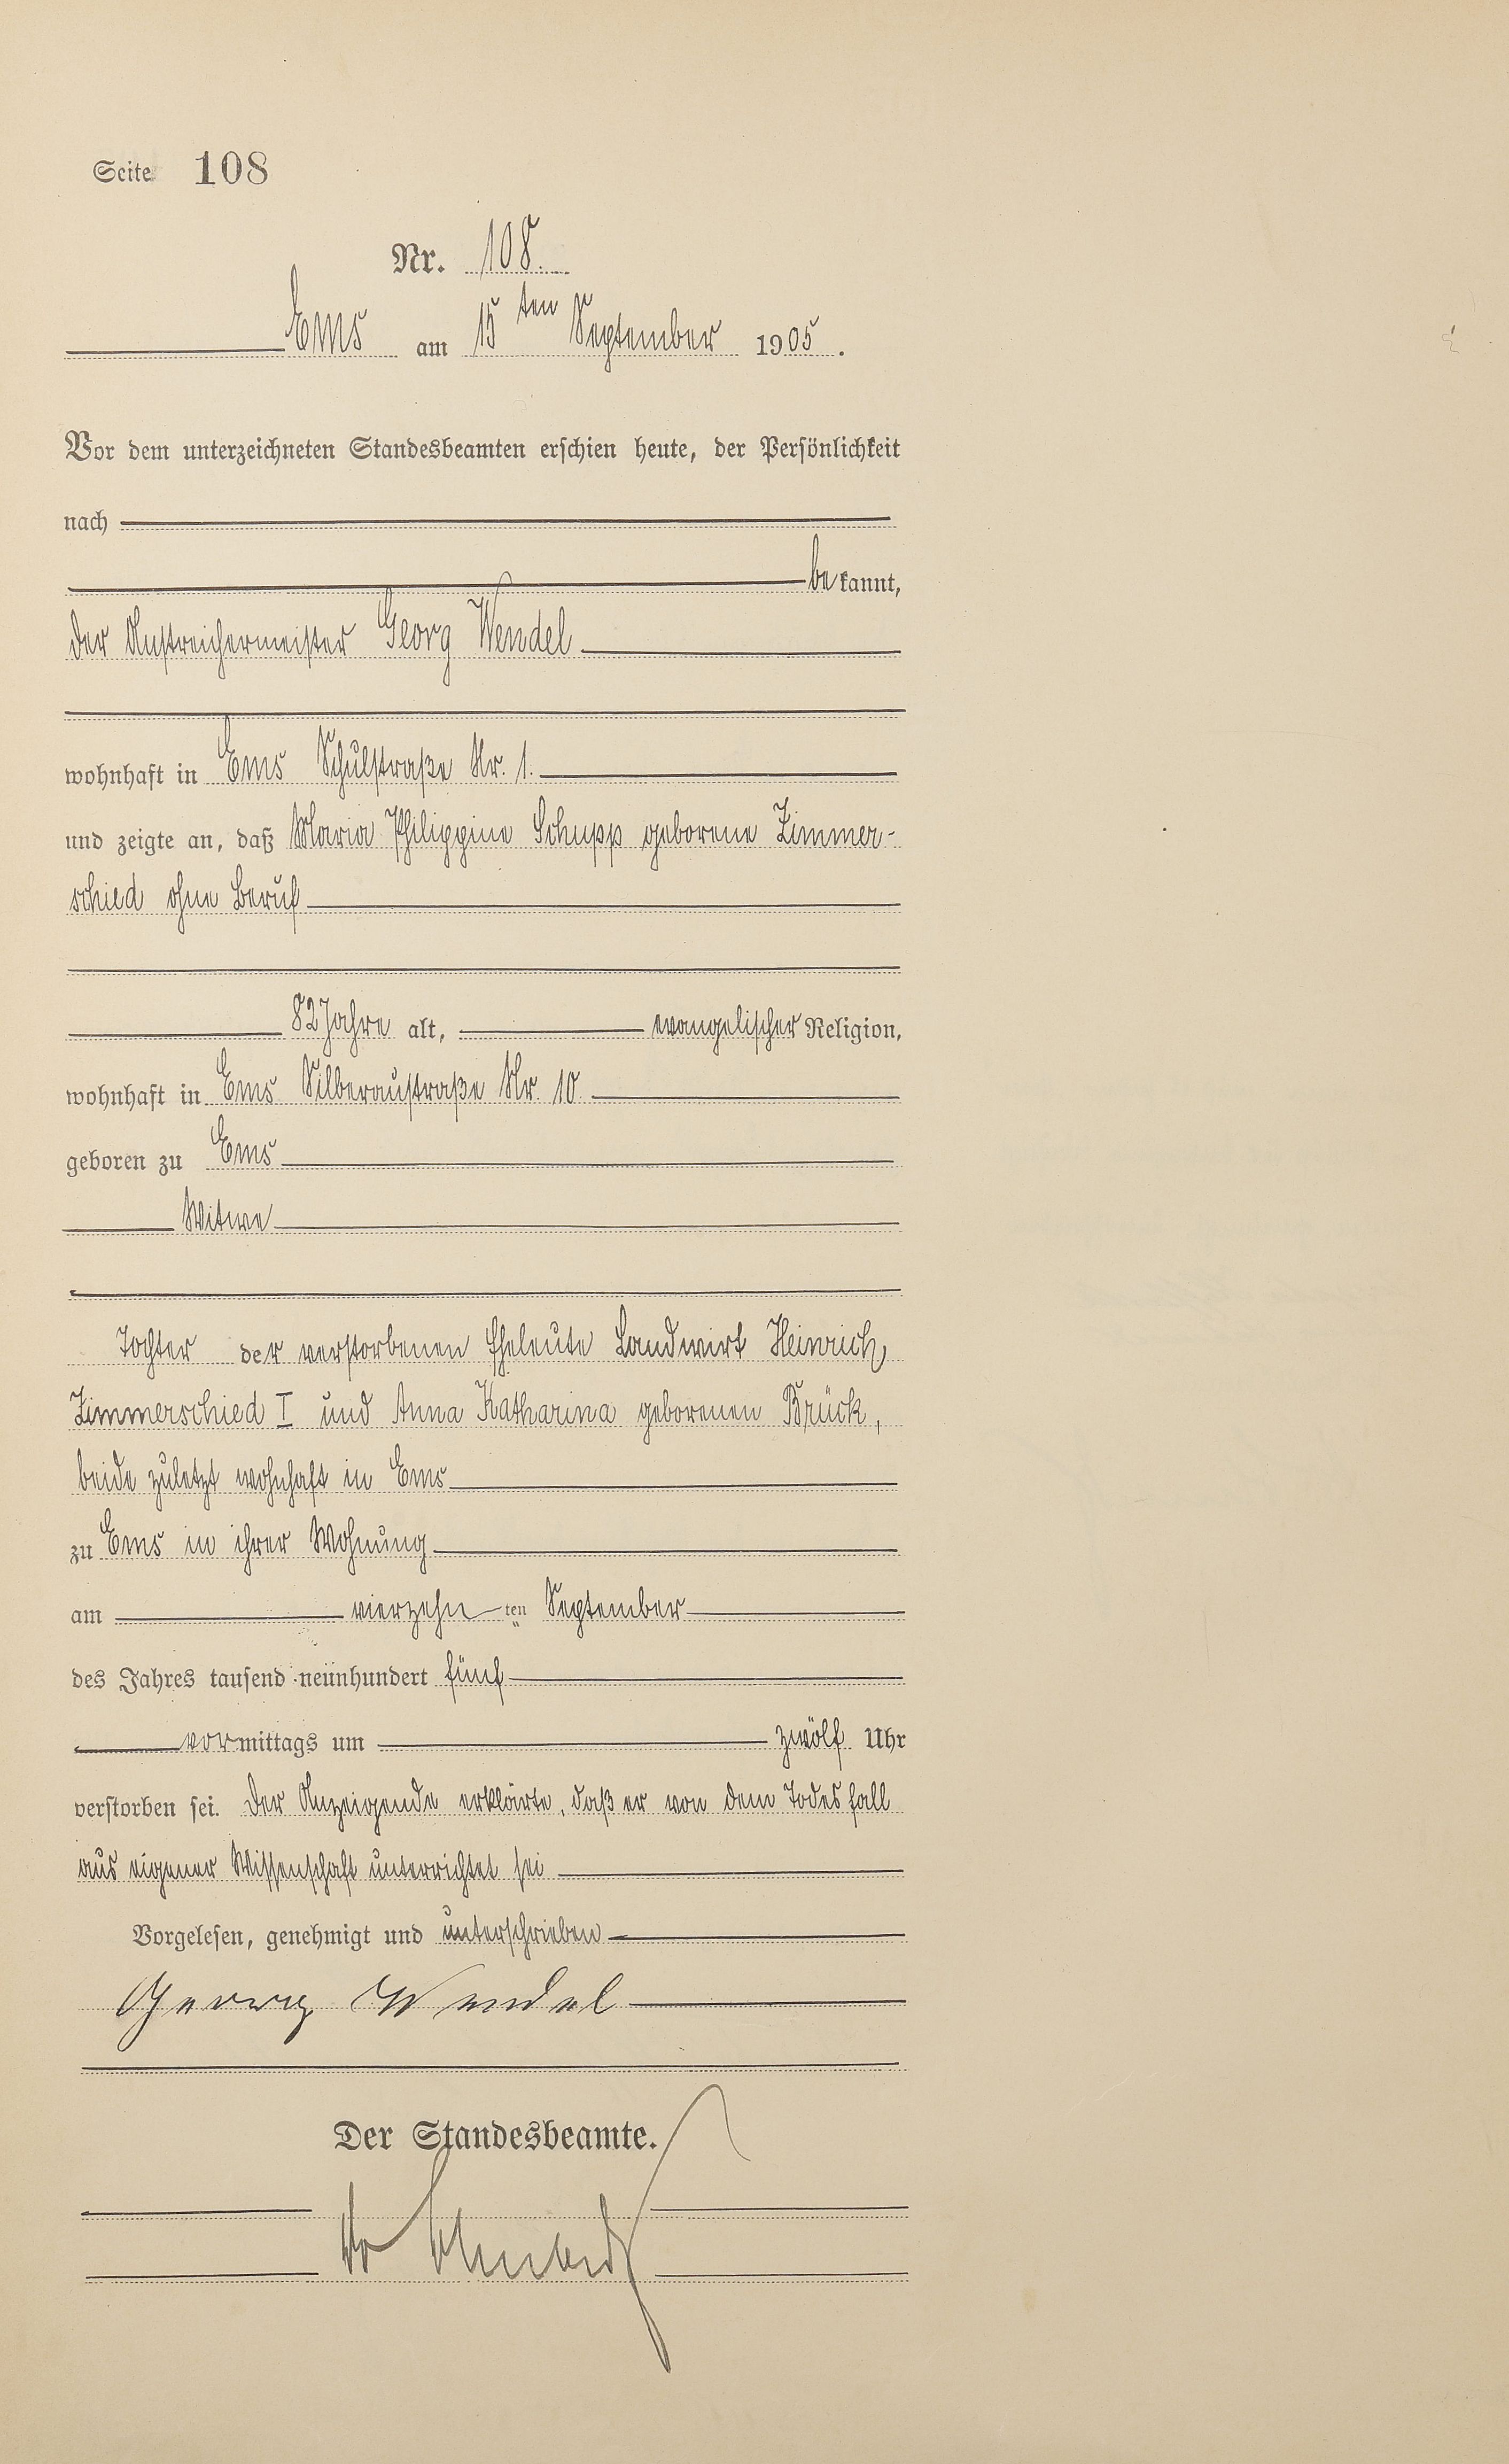 Seite 108
Nr. 108.
Ems am 15ten September 1905.
Vor dem unterzeichneten Standesbeamten erschien heute, der Persönlichkeit
nach
bekannt,
der Anstreichermeister Georg Wendel
wohnhaft in Ems Schulstraße Nr. 1.
und zeigte an, daß Maria Philippine Schupp geborene Zimmer-
schied ohne Beruf
82 Jahre alt, evangelischer Religion,
wohnhaft in Ems Silberaustraße Nr. 10.
geboren zu Ems
Witwe
Tochter der verstorbenen Eheleute Landwirt Heinrich
Zimmerschied I und Anna Katharina geborenen Brück,
beide zuletzt wohnhaft in Ems
zu Ems in ihrer Wohnung
am vierzehnten September
des Jahres tausend neunhundert fünf
vormittags um zwölf Uhr
verstorben sei. Der Anzeigende erklärte, daß er von dem Todesfall
aus eigener Wissenschaft unterrichtet sei
Vorgelesen, genehmigt und unterschrieben
Georg Wendel
Der Standesbeamte.